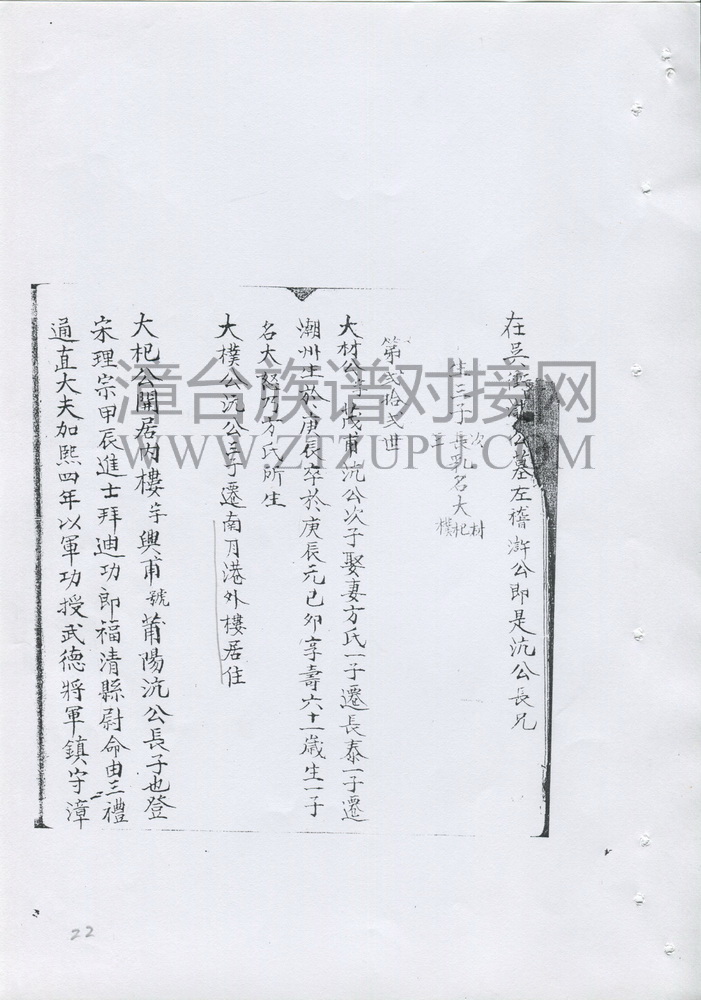 在吳衝滸公墓左穡滸公即是沆公長兄
生三子長乳名大杞
次 材
三 樸
第貳拾弍世
大材公字茂甫沆公次子娶妻方氏一子遷長泰一子遷
潮州生於庚辰卒於庚辰元己卯享壽六十一歲生一子
名大奴乃方氏所生
大樸公沆公三子遷南月港外樓居住
大杞公開居內樓字興甫號莆陽沆公長子也登
宋理宗甲辰進士拜迪功郎福清縣尉命由三禮
通直大夫加熙四年以軍功授武德將軍鎮守漳
漳台族谱对接网
WWW.ZTZUPU.COM
22